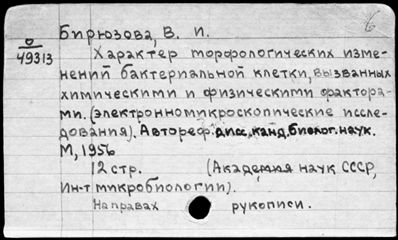 б
Бирюзова, В. И.
о
49313
Характер морфологических изме-
нений бактериальной клетки, вызванных
химическими и физическими фактора-
ми. (электронномикроскопические иссле-
дования). Автореф. дисс. канд. биолог. наук.
М, 1956
12 стр. (Академия наук СССР,
Ин-т микробиологии).
На правах рукописи.